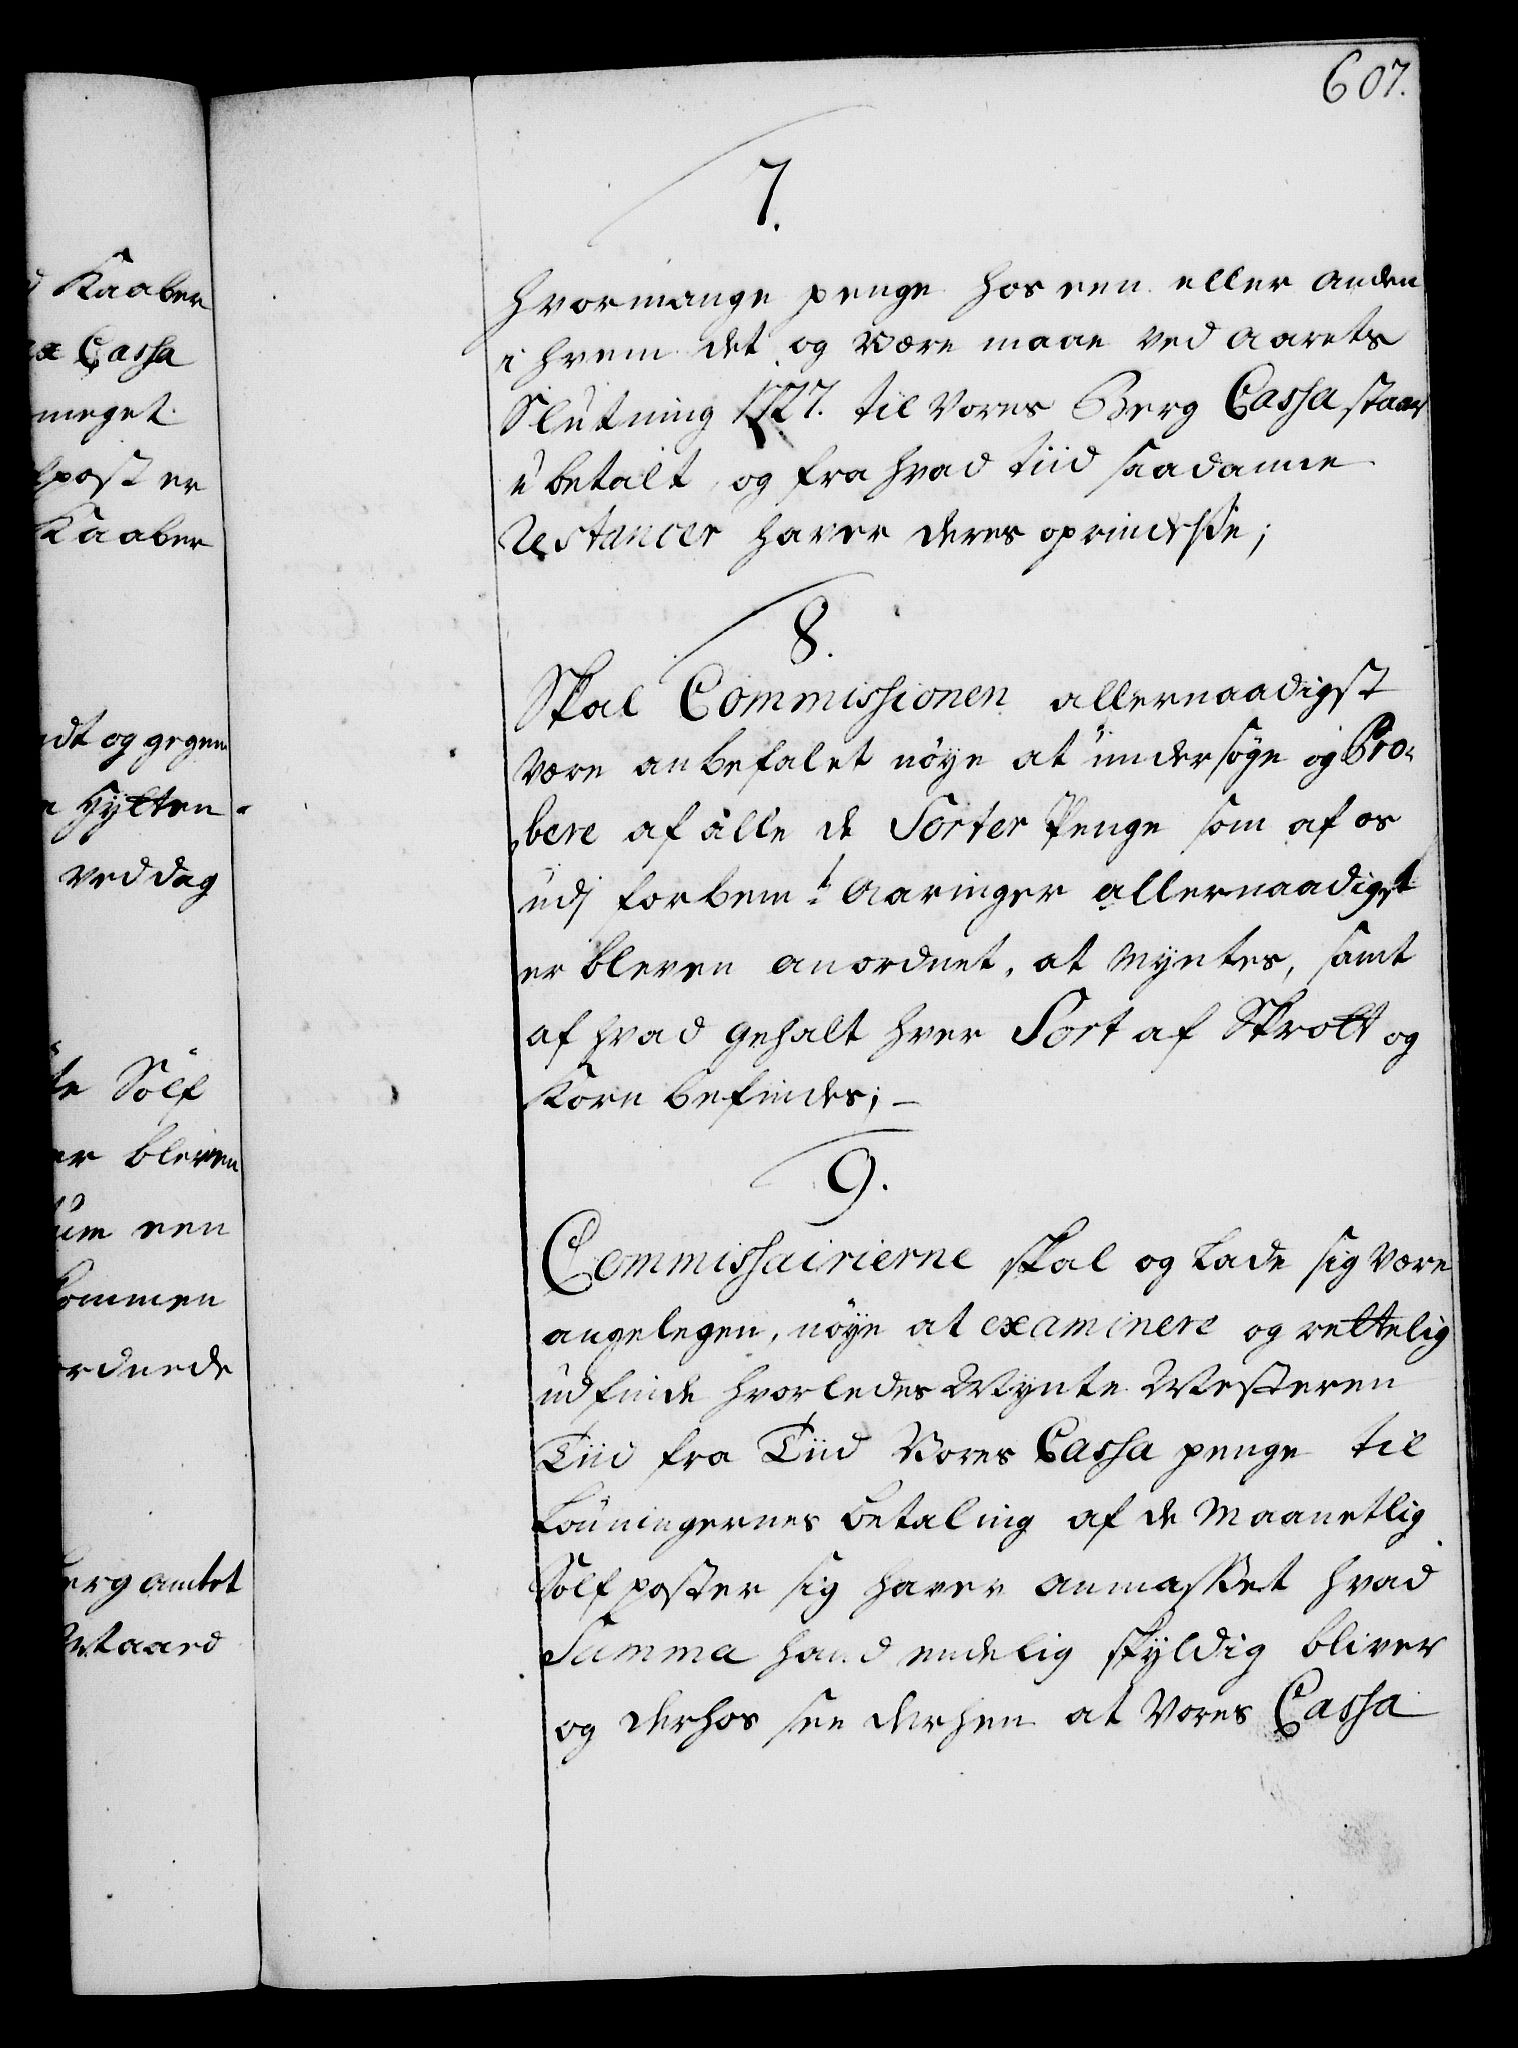 607.
7.
hvormange penge hos een eller anden
i hvem det og være maae ved aarets
Slutning 1727. til Vores Berg Cassa staar
ubetalt, og fra hvad tiid saadanne
Restancer haver deres oprindelse;
8.
Skal Commissionen allernaadigst
være anbefalet nøye at undersøge og Pro-
bere af alle de Sorter Penge som af os
udj forbemt Aaringer allernaadigst
er bleven anordnet, at Myntes, samt
af hvad gehalt hver Sort af Skrott og
Korn befindes;
9.
Commissairierne skal og lade sig være
angelegen, nøye at examinere og rettelig
udfinde hvorledes Mynte Mesteren
Tiid fra Tiid Vores Cassa penge til
Lønningernes betaling af de Maanetlig
Sølf poster sig haver anmasset hvad
Summa hand endelig skyldig bliver
og derhos see derhen at Vores Cassa
Kaaber
Cassa
meget
post er
Kaaber
og gegen
Hytten
ved dag
Sølf
er bleven
een
kommen
ordnede
Bergamtet
Maared